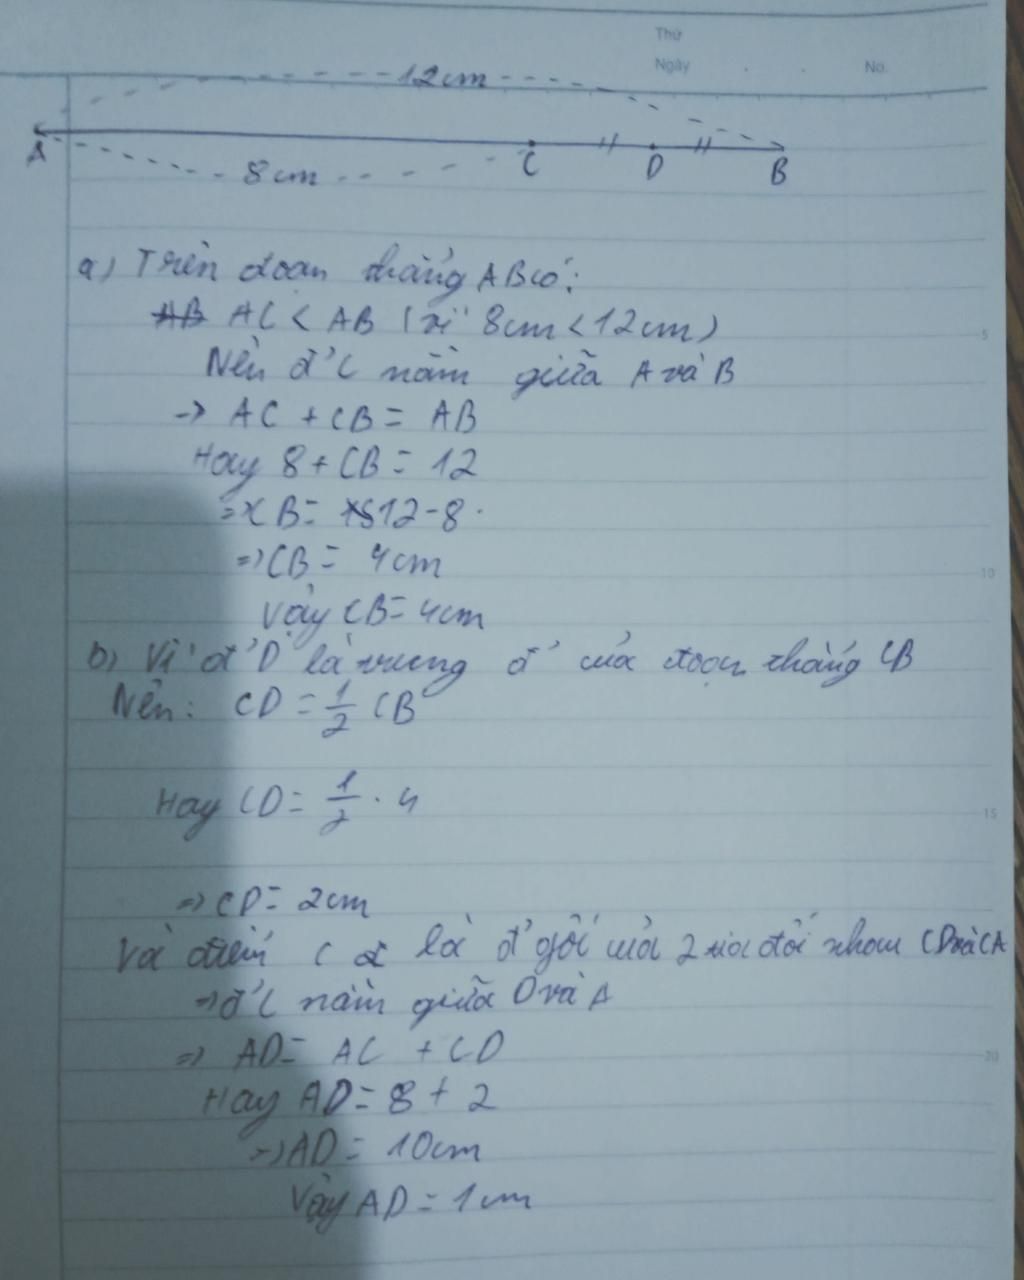 Thứ
Ngày . . No.
12cm
A C D B
8cm
a) Trên đoạn thẳng AB có:
AC < AB (vì 8cm < 12cm)
Nên đ' C nằm giữa A và B
-> AC + CB = AB
Hay 8 + CB = 12
=> CB = 12 - 8
=> CB = 4cm
Vậy CB = 4cm
b) Vì đ' D là trung đ' của đoạn thẳng CB
Nên: CD = 1/2 CB
Hay CD = 1/2 . 4
=> CD = 2cm
Và điểm C là đ' gốc của 2 tia đối nhau CD và CA
-> đ' C nằm giữa D và A
=> AD = AC + CD
Hay AD = 8 + 2
-> AD = 10cm
Vậy AD = 1cm
5
10
15
20